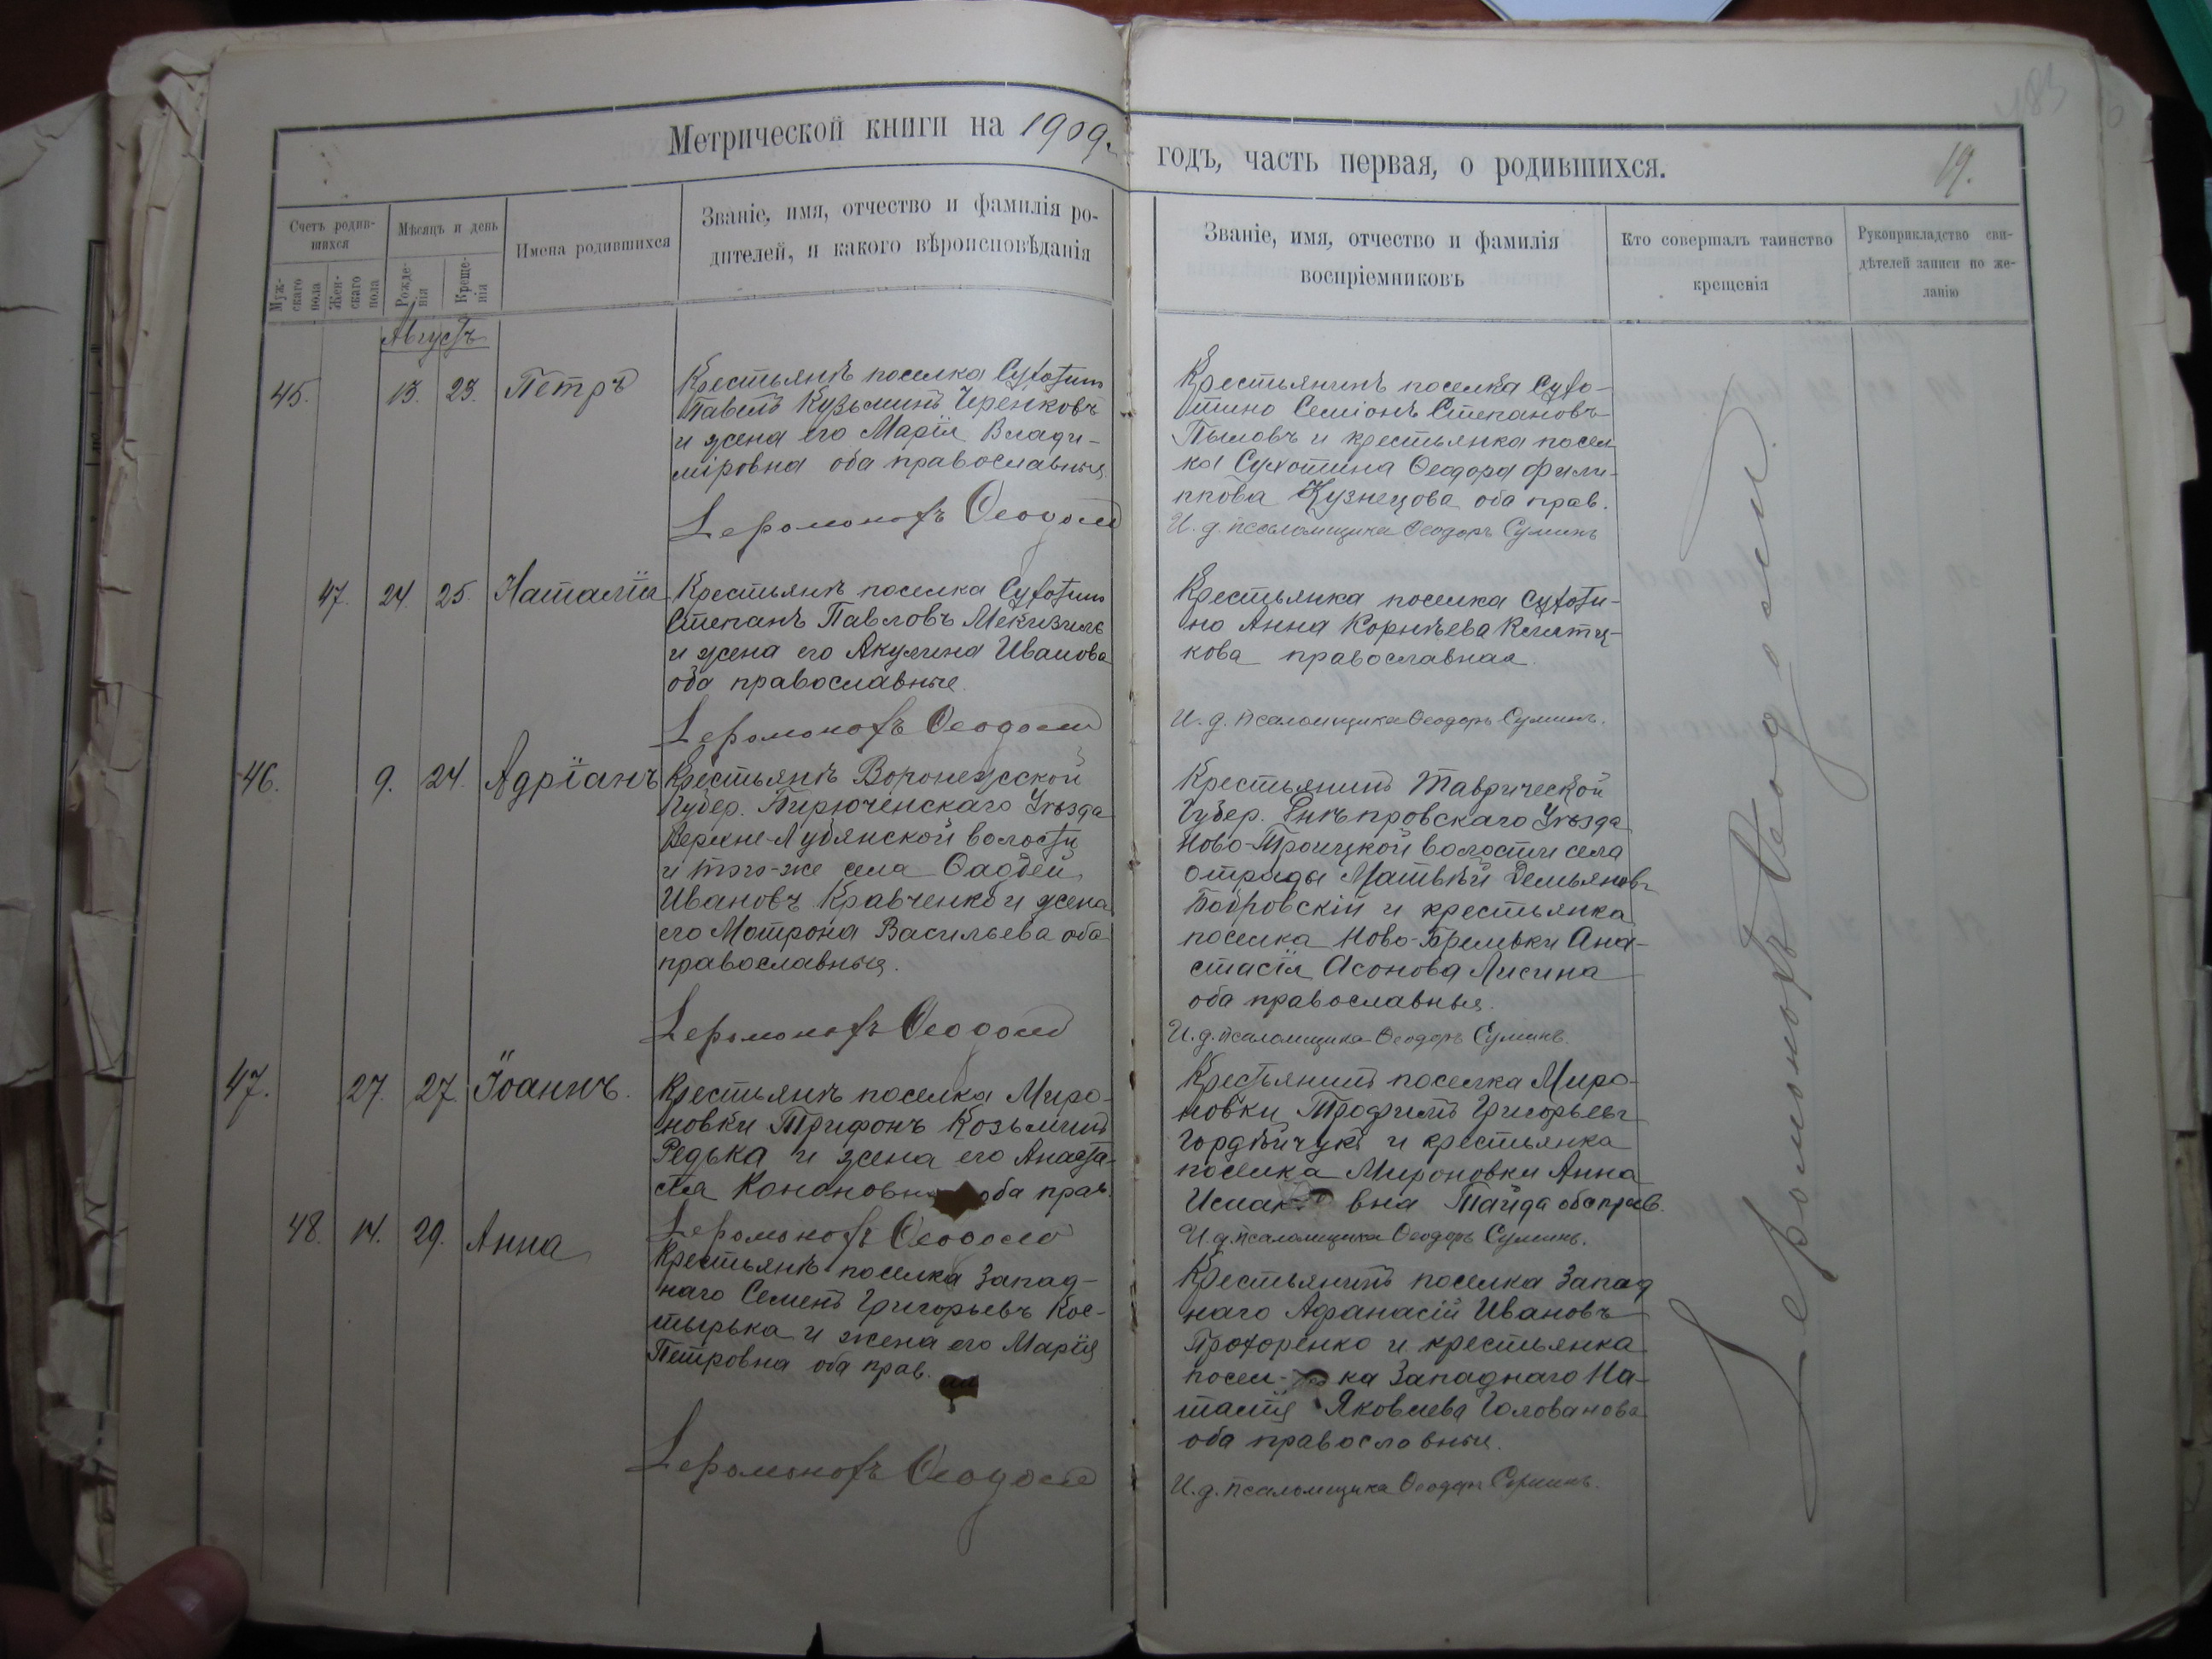 Метрической книги на 1909 г.
годъ, часть первая, о родившихся.
19.
483
Счетъ родив-
шихся
Мѣсяцъ и день
Имена родившихся
Званіе, имя, отчество и фамилія ро-
дителей, и какого вѣроисповѣданія
Муж-
скаго
пола
Жен-
скаго
пола
Рожде-
нія
Креще-
нія
Званіе, имя, отчество и фамилія
воспріемниковъ
Кто совершалъ таинство
крещенія
Рукоприкладство сви-
дѣтелей записи по же-
ланію
Августъ
45. 13. 23. Петръ
Крестьянъ поселка Сухотино
Павелъ Кузьминъ Черенковъ
и жена его Марія Влади-
міровна оба православныя
Іеромонахъ Ѳеодосій
Крестьянинъ поселка Сухо-
тино Семіонъ Степановъ
Пыловъ и крестьянка посел-
ка Сухотина Ѳеодора Фили-
ппова Кузнецова оба прав.
И. д. псаломщика Ѳеодоръ Суминъ
47. 24. 25. Наталія
Крестьянъ поселка Сухотино
Степанъ Павловъ
и жена его Акулина Иванова
оба православные.
Іеромонахъ Ѳеодосій
Крестьянка поселка Сухоти-
но Анна Корнѣева
кова православная.
И. д. псаломщика Ѳеодоръ Суминъ.
46. 9. 24. Адріанъ
Крестьянъ Воронежской
Губер. Бирюченскаго Уѣзда
Верхне-Лубянской волости
и того-же села Ѳаддей
Ивановъ Кравченко и жена
его Матрона Васильева оба
православныя.
Іеромонахъ Ѳеодосій
Крестьянинъ Таврической
Губер. Днѣпровскаго Уѣзда
Ново-Троицкой волости села
отрады Матвѣй Демьяновъ
Бобровскій и крестьянка
поселка Ново-Бремъвки Ана-
стасія Асонова Лисина
оба православныя.
И. д. псаломщика Ѳеодоръ Суминъ.
47. 27. 27. Іоаннъ.
Крестьянъ поселка Миро-
новки Трифонъ Козьминъ
Редька и жена его Анаста-
сія Кононовна оба прав.
Іеромонахъ Ѳеодосій
Крестьянинъ поселка Миро-
новки Трофимъ Григорьевъ
Гордѣйчукъ и крестьянка
поселка Мироновки Анна
Исиак вна Тайда оба прав.
И. д. псаломщика Ѳеодоръ Суминъ.
48. 14. 29. Анна
Крестьянъ поселка Запад-
наго Семенъ Григорьевъ Кос-
тырька и жена его Марія
Петровна оба прав.
Іеромонахъ Ѳеодосій
Крестьянинъ поселка Запад
наго Афанасій Ивановъ
Прохоренко и крестьянка
посел- ка Западнаго На-
талія Яковлева Голованова
оба православныя.
И. д. псаломщика Ѳеодоръ Суминъ.
Іеромонахъ Ѳеодосій.